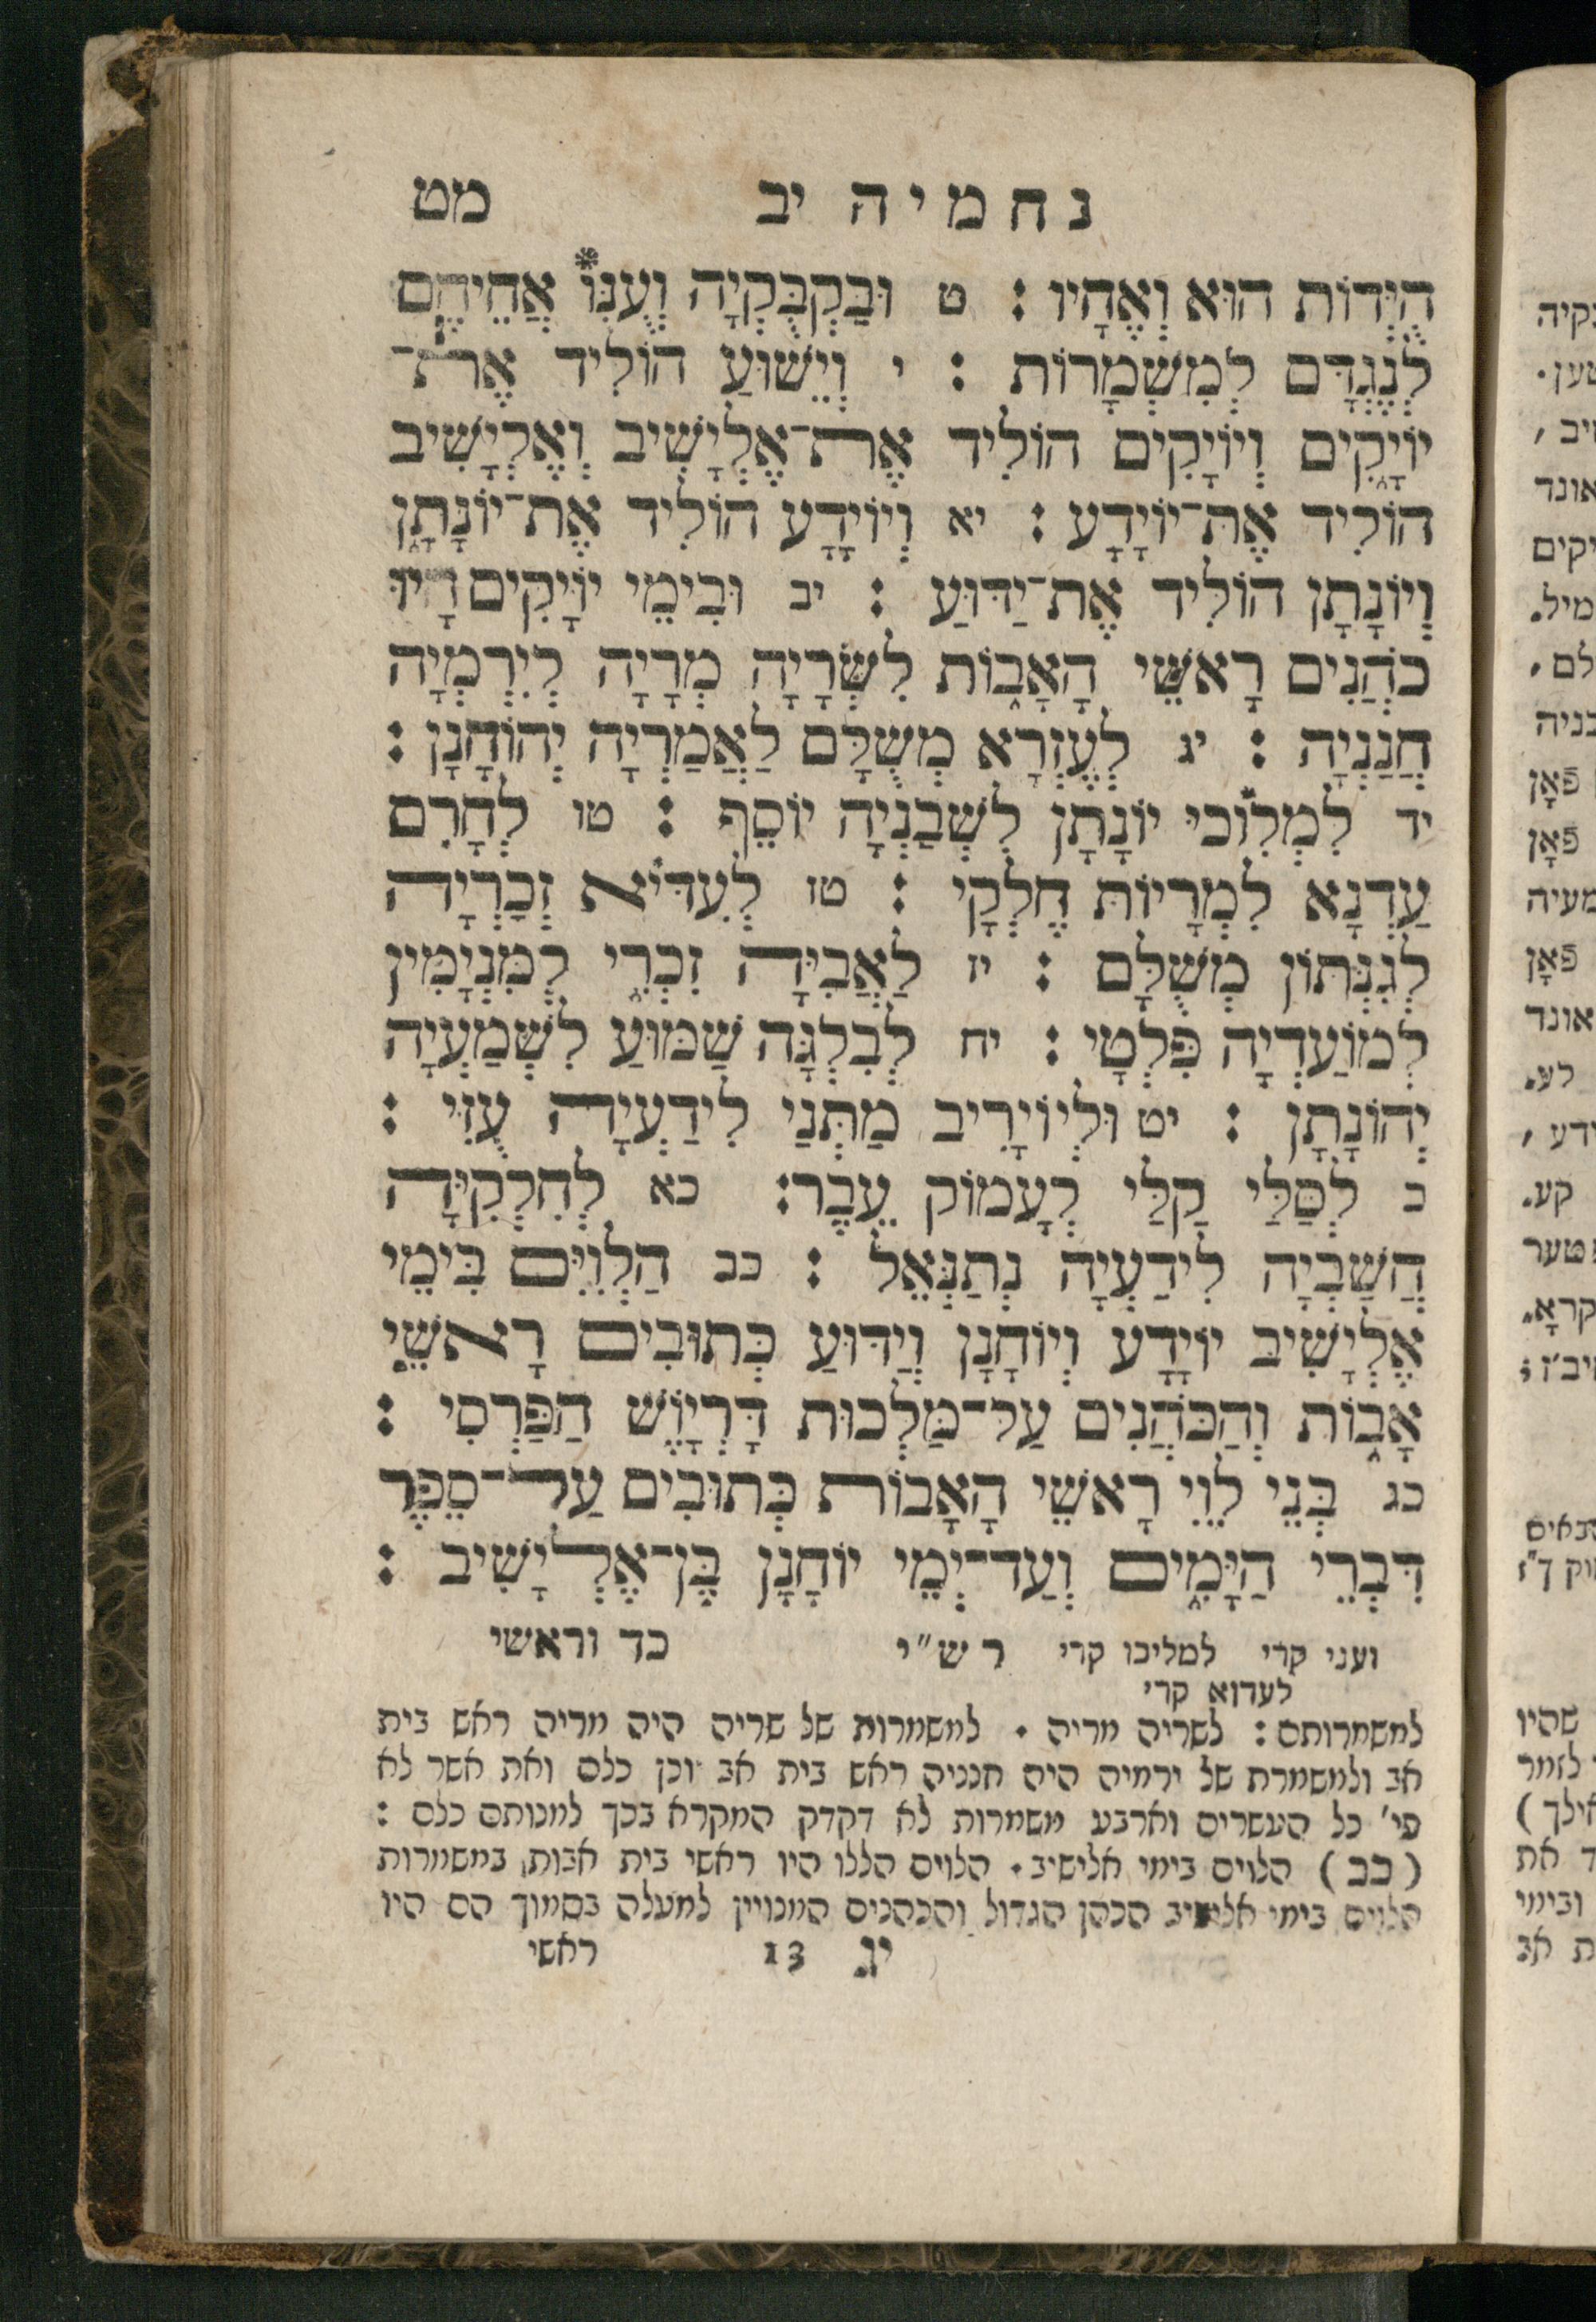 נחמיה יב מט
הֻיְּדוֹת הוּא וְאֶחָיו : ט וּבַקְבֻּקְיָה וְעֻנִּוֹ* אֲחֵיהֶם
לְנֶגְדָּם לְמִשְׁמָרוֹת : י וְיֵשׁוּעַ הוֹלִיד אֶת־
יוֹיָקִים וְיוֹיָקִים הוֹלִיד אֶת־אֶלְיָשִׁיב וְאֶלְיָשִׁיב
הוֹלִיד אֶת־יוֹיָדָע : יא וְיוֹיָדָע הוֹלִיד אֶת־יוֹנָתָן
וְיוֹנָתָן הוֹלִיד אֶת־יַדּוּעַ : יב וּבִימֵי יוֹיָקִים הָיוּ
כֹהֲנִים רָאשֵׁי הָאָבוֹת לִשְׂרָיָה מְרָיָה לְיִרְמְיָה
חֲנַנְיָה : יג לְעֶזְרָא מְשֻׁלָּם לַאֲמַרְיָה יְהוֹחָנָן :
יד לִמְלִוֹכִי יוֹנָתָן לִשְׁבַנְיָה יוֹסֵף : טו לְחָרִם
עַדְנָא לִמְרָיוֹת חֶלְקָי : טז לְעִדִּיא זְכַרְיָה
לְגִנְּתוֹן מְשֻׁלָּם : יז לַאֲבִיָּה זִכְרִי לְמִנְיָמִין
לְמוֹעַדְיָה פִּלְטָי : יח לְבִלְגָּה שַׁמּוּעַ לִשְׁמַעְיָה
יְהוֹנָתָן : יט וּלְיוֹיָרִיב מַתְּנַי לִידַעְיָה עֻזִּי :
כ לְסַלַּי קַלָּי לְעָמוֹק עֵבֶר: כא לְחִלְקִיָּה
חֲשַׁבְיָה לִידַעְיָה נְתַנְאֵל : כב הַלְוִיִּם בִּימֵי
אֶלְיָשִׁיב יוֹיָדָע וְיוֹחָנָן וְיַדּוּעַ כְּתוּבִים רָאשֵׁי
אָבוֹת וְהַכֹּהֲנִים עַל־מַלְכוּת דָּרְיָוֶשׁ הַפַּרְסִי :
כג בְּנֵי לֵוִי רָאשֵׁי הָאָבוֹת כְּתוּבִים עַל־סֵפֶר
דִּבְרֵי הַיָּמִים וְעַד־יְמֵי יוֹחָנָן בֶּן־אֶלְיָשִׁיב :
ועני קרי למליכו קרי רש״י כד וראשי
לעדוא קרי
למשמרותם : לשריה מריה . למשמרות של שריה היה מריה ראש בית
אב ולמשמרת של ירמיה היה חנניה ראש בית אב וכן כלם ואת אשר לא
פי׳ כל העשרים וארבע משמרות לא דקדק המקרא בכך למנותם כלם :
(כב) הלוים בימי אלישיב . הלוים הללו היו ראשי בית אבות, במשמרות
הלוים בימי אלישיב הכהן הגדול והכהנים המנויין למעלה בסמוך הם היו
יג 13 ראשי